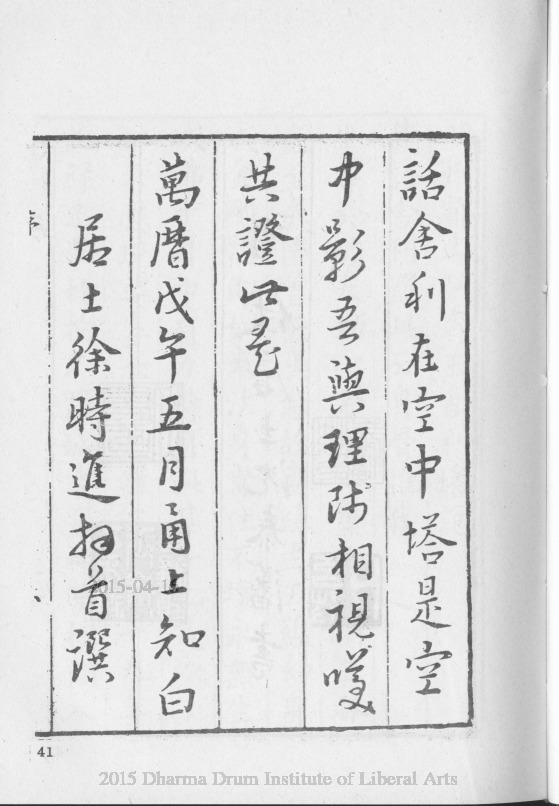 話舍利在空中塔是空
中影吾與理師相視嘆
共證此意
萬曆戊午五月甬上知白
居士徐時進扣首譔
序
41
2015-04-1
2015 Dharma Drum Institute of Liberal Arts